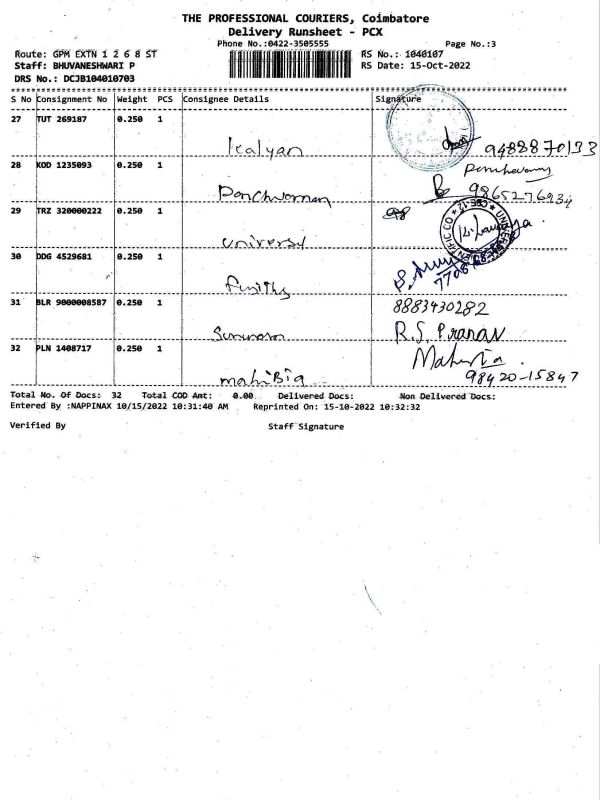 THE PROFESSIONAL COURIERS, Coimbatore
Delivery Runsheet - PCX
Phone No.:0422-3505555 Page No.:3
Route: GPM EXTN 1 2 6 8 ST RS No.: 1040107
Staff: BHUVANESHWARI P RS Date: 15-Oct-2022
DRS No.: DCJB104010703
S No Consignment No Weight PCS Consignee Details Signature
27 TUT 269187 0.250 1
Kalyan 9488870133
28 KOD 1235093 0.250 1
9865276934
29 TRZ 320000222 0.250 1
30 DDG 4529681 0.250 1
31 BLR 9000008587 0.250 1 8883430282
R.S. Pranav
32 PLN 1408717 0.250 1
98420-15847
Total No. Of Docs: 32 Total COD Amt: 0.00 Delivered Docs: Non Delivered Docs:
Entered By :NAPPINAX 10/15/2022 10:31:40 AM Reprinted On: 15-10-2022 10:32:32
Verified By Staff Signature